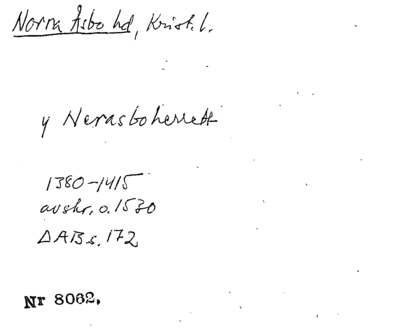 Norra Åsbo hd, Krist. l.
y Nerasboherrett
1380-1415
avskr. o. 1530
ΔAB s. 172
Nr 8062.